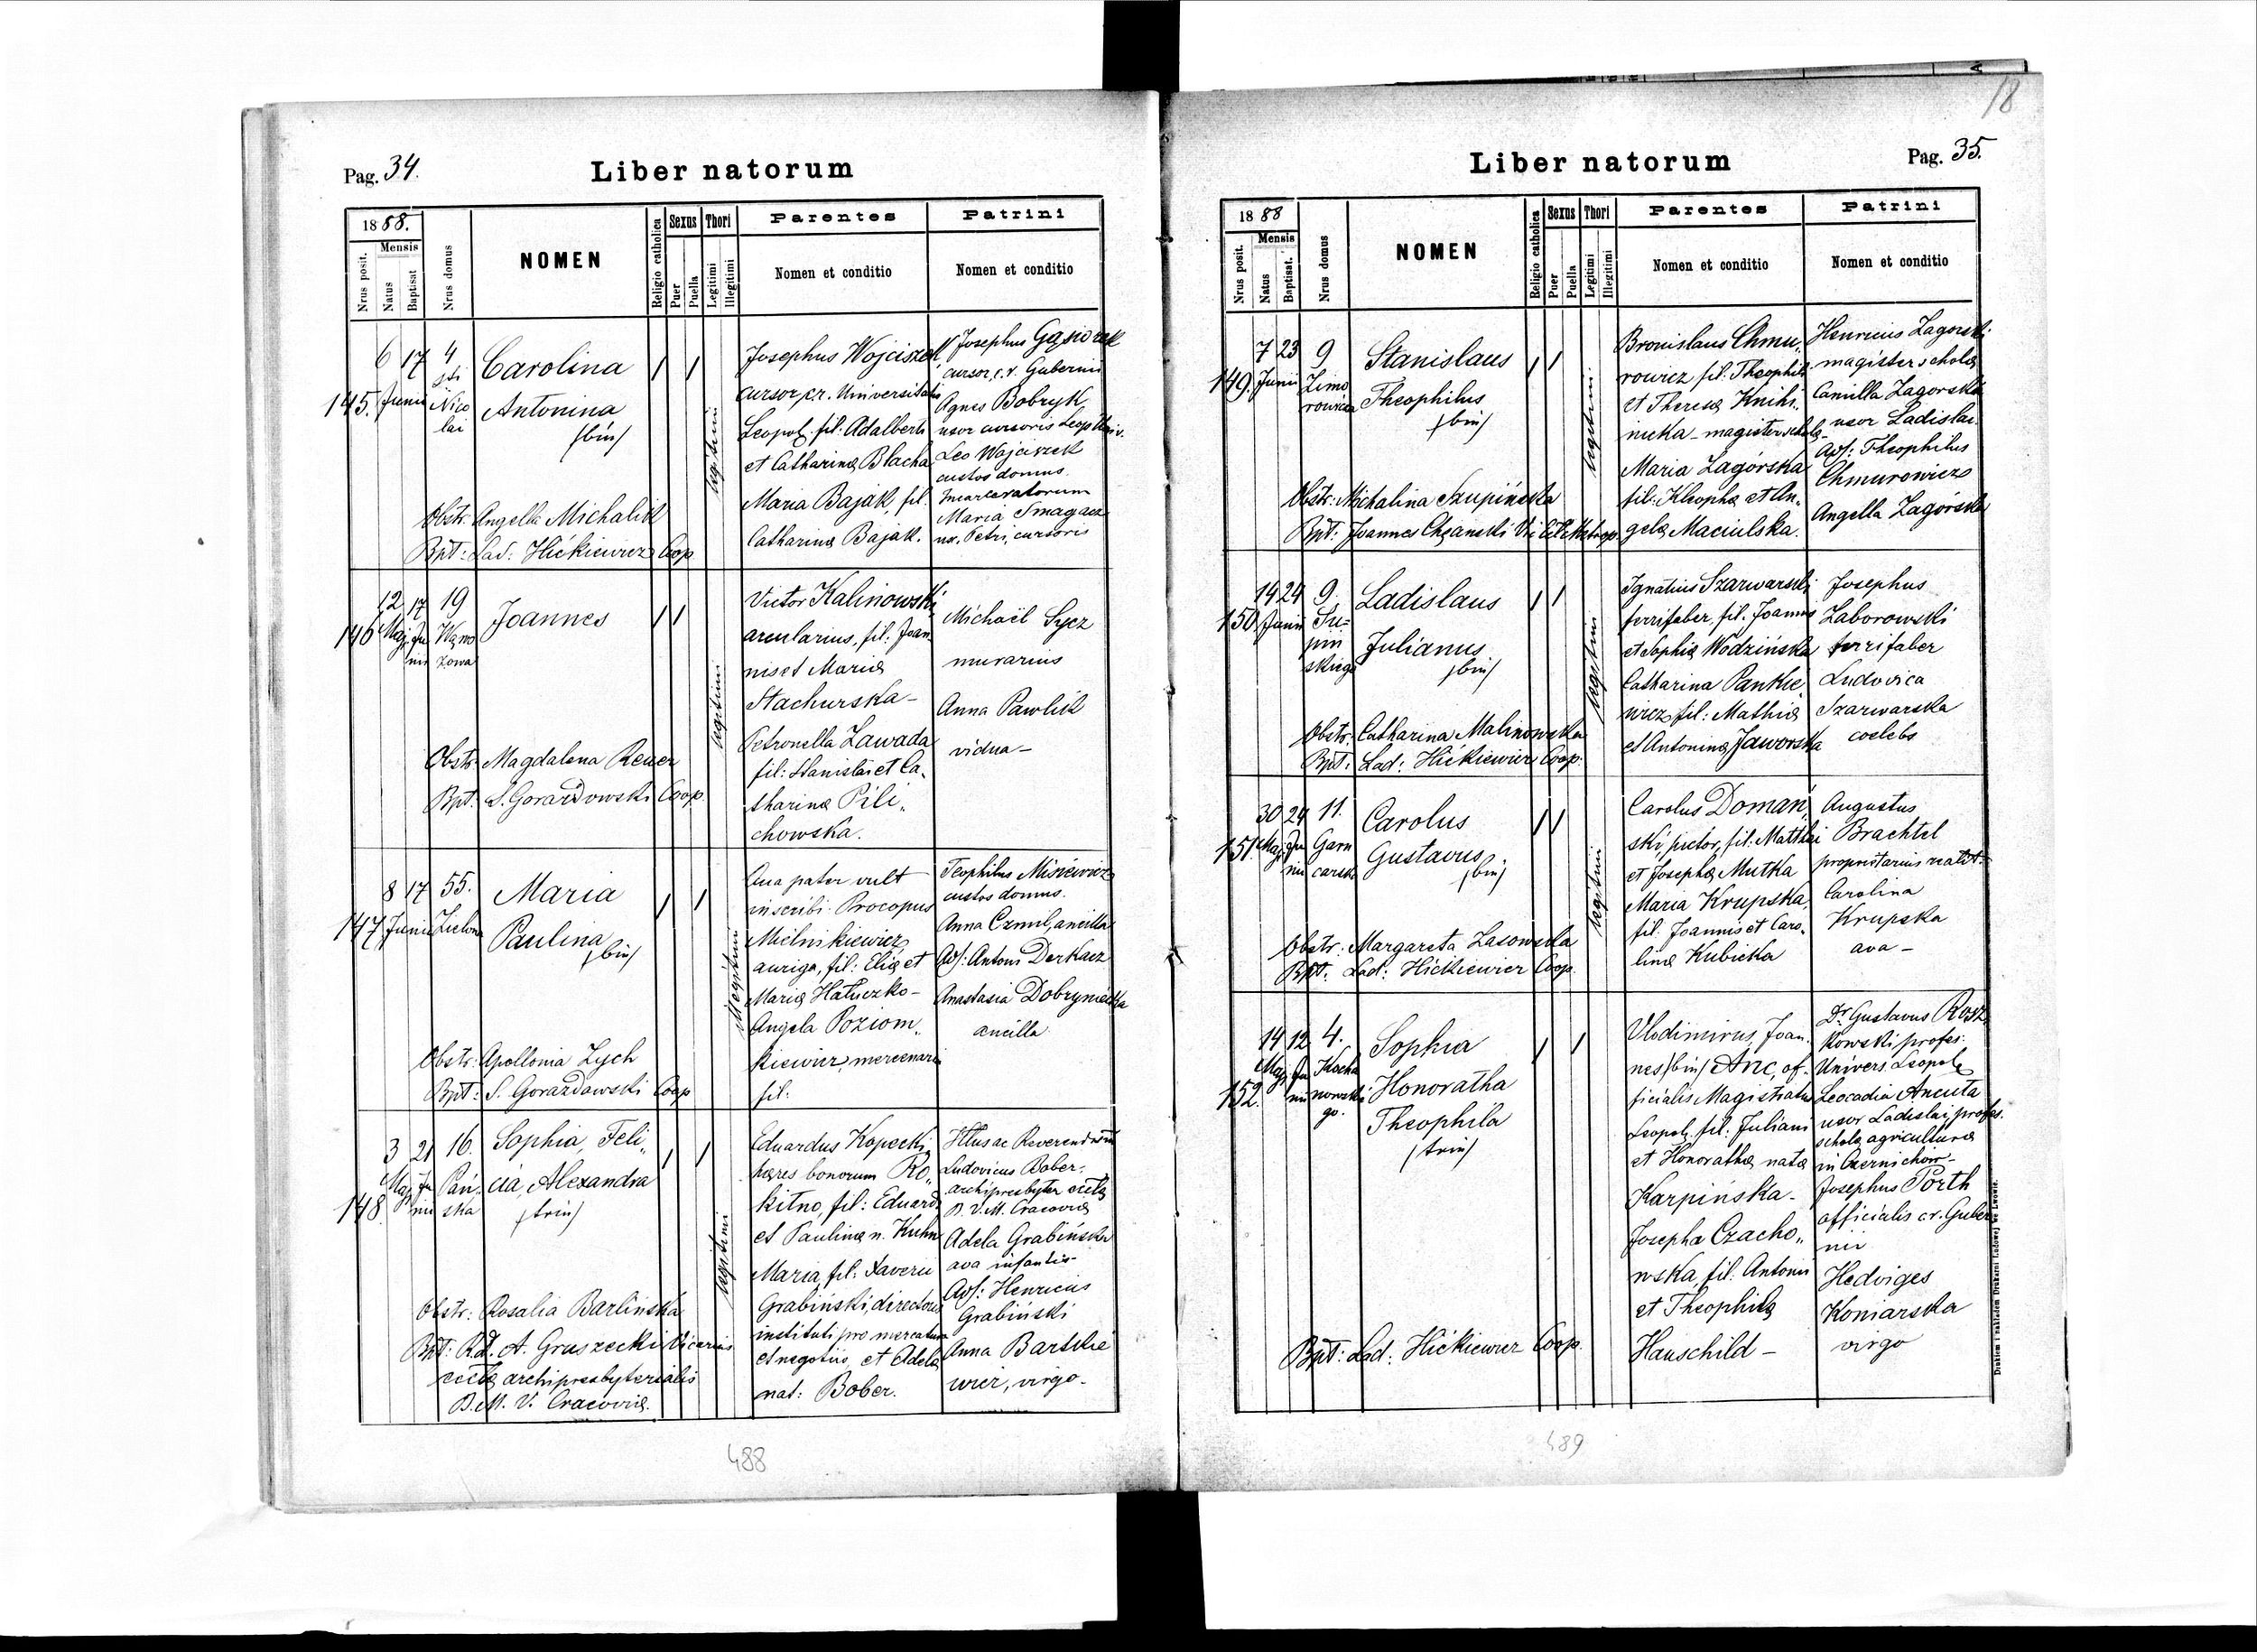 Pag. 34.
Liber natorum
1888.
Mensis
Nrus posit.
Natus
Baptisat
Nrus domus
NOMEN
Religio catholica
Sexus
Puer
Puella
Thori
Legitimi
Illegitimi
Parentes
Nomen et conditio
Patrini
Nomen et conditio
145.
6 17 4
Junii sti
Nico
lai
Carolina
Antonina
/bin/
Obstr. Angella Michalik
Bpt: Lad: Hićkiewicz Coop
legitimi
Josephus Wojciszek
cursor, c.r. Universitatis
Leopol. fil: Adalberti
et Catharina Blacha
Maria Bajak, fil.
Catharina Bajak.
Josephus Gąsiorek
cursor, c.r. Gubernii
Agnes Bobryk
uxor cursoris Leop Univ.
Leo Wojciszek
custos domus
Incarceratorum
Maria Smagacz
ux. Petri, cursoris
146
12 17 19
Maj. Ju
nii
Wąwo
zowa
Joannes
Obstr. Magdalena Reuer
Bpt. S. Gorazdowski Coop.
legitimi
Victor Kalinowski,
arcularius, fil: Joan
nis et Maria
Stachurska -
Petronella Zawada
fil: Stanislai et Ca,
tharina Pili,,
chowska.
Michaël Sycz
murarius
Anna Pawlik
vidua -
147
8 17 55.
Junii Zielona
Maria
Paulina
/bin/
Obstr: Apollonia Zych
Bpt: S. Gorazdowski Coop
Illegitimi
Qua pater vult
inscribi Procopus
Mielnikiewicz,
auriga, fil: Elia et
Maria Hałuczko -
Angela Poziom,,
kiewicz mercenarii
fil:
Teophilus Misiewicz
custos domus.
Anna Czmil, ancilla
Ass: Antoni Derkacz
Anastasia Dobryniecka
ancilla
148
3 21 16.
Maj. Ju
nii
Pań,
ska
Sophia, Feli,,
cia, Alexandra
/trin/
Obstr: Rosalia Barlińska
Bpt: Rd. A. Gruszecki Vicarius
eccla archipresbyterialis
B. M. V. Cracovia.
legitimi
Eduardus Kopecki,
hæres bonorum Ro,,
kitno, fil: Eduardi
et Paulina n. Kuhn
Maria, fil: Xaverii
Grabiński, directoris
instituti pro mercatura
et negotiis, et Adela
nat: Bober.
Illus ac Reverendissim
Ludovicus Bober,
archipresbyter eccla
B. V. M. Cracovia
Adela Grabińska
ava infantis
Ass: Henricus
Grabiński
Anna Bartkie
wicz, virgo -
488
18
Liber natorum
Pag. 35.
1888
Mensis
Nrus posit.
Natus
Baptisat.
Nrus domus
NOMEN
Religio catholica
Sexus
Puer
Puella
Thori
Legitimi
Illegitimi
Parentes
Nomen et conditio
Patrini
Nomen et conditio
149.
7 23 9
Junii Zimo
rowicza
Stanislaus
Theophilus
/bin/
Obstr: Michalina Szupińska
legitimi
Bronislaus Chmu,,
rowicz, fil: Theophili
et Theresa Knihi,,
nicka - magister schola -
Maria Zagórska
fil: Kleopha et An,
gela Maciulska.
Henricus Zagorski
magister schola
Camilla Zagorska
uxor Ladislai
Ass: Theophilus
Chmurowicz
Angella Zagórska
150.
14 24 9.
Junii Su=
piń
skiego
Ladislaus
Julianus
/bin/
Obstr: Catharina Malinowska
Bpt: Lad: Hićkiewicz Coop.
legitimi
Ignatius Szarwarski
ferrifaber, fil. Joannis
et Sophia Wodzińska
Catharina Pankie,
wicz fil: Mathia
et Antonina Jaworska
Josephus
Zaborowski
ferrifaber
Ludovica
Szarwarska
coelebs
151
30 24 11.
Maj. Ju
nii
Garn
carska
Carolus
Gustavus
/bin/
Obstr: Margareta Lasowska
Bpt: Lad: Hićkiewicz Coop.
legitimi
Carolus Domań,
ski, pictor, fil. Matthai
et Josepha Mutka
Maria Krupska,
fil: Joannis et Caro,
lina Kubicka
Augustus
Brachtel
proprietarius realit:
Carolina
Krupska
ava -
152.
14 12 4.
Maj. Ju
nii
Kocha
nowski
go.
Sophia
Honoratha
Theophila
/trin/
Bpt: Lad: Hićkiewicz Coop.
Vlodimirus, Joan
nes /bin/ Anc, of,
ficialis Magistratus
Leopol. fil: Juliani
et Honoratha nata
Karpińska -
Josepha Czacho,,
wska, fil: Antonii
et Theophila
Hauschild -
Dr Gustavus Rosz,
kowski profes:
Univers. Leopol
Leocadia Ancuta
uxor Ladislai, profes.
schola agricultura
in Czernichow -
Josephus Porth
officialis c.r. Guber
nii
Hedviges
Koniarska
virgo
Drukiem i nakładem Drukarni Ludowej we Lwowie.
489